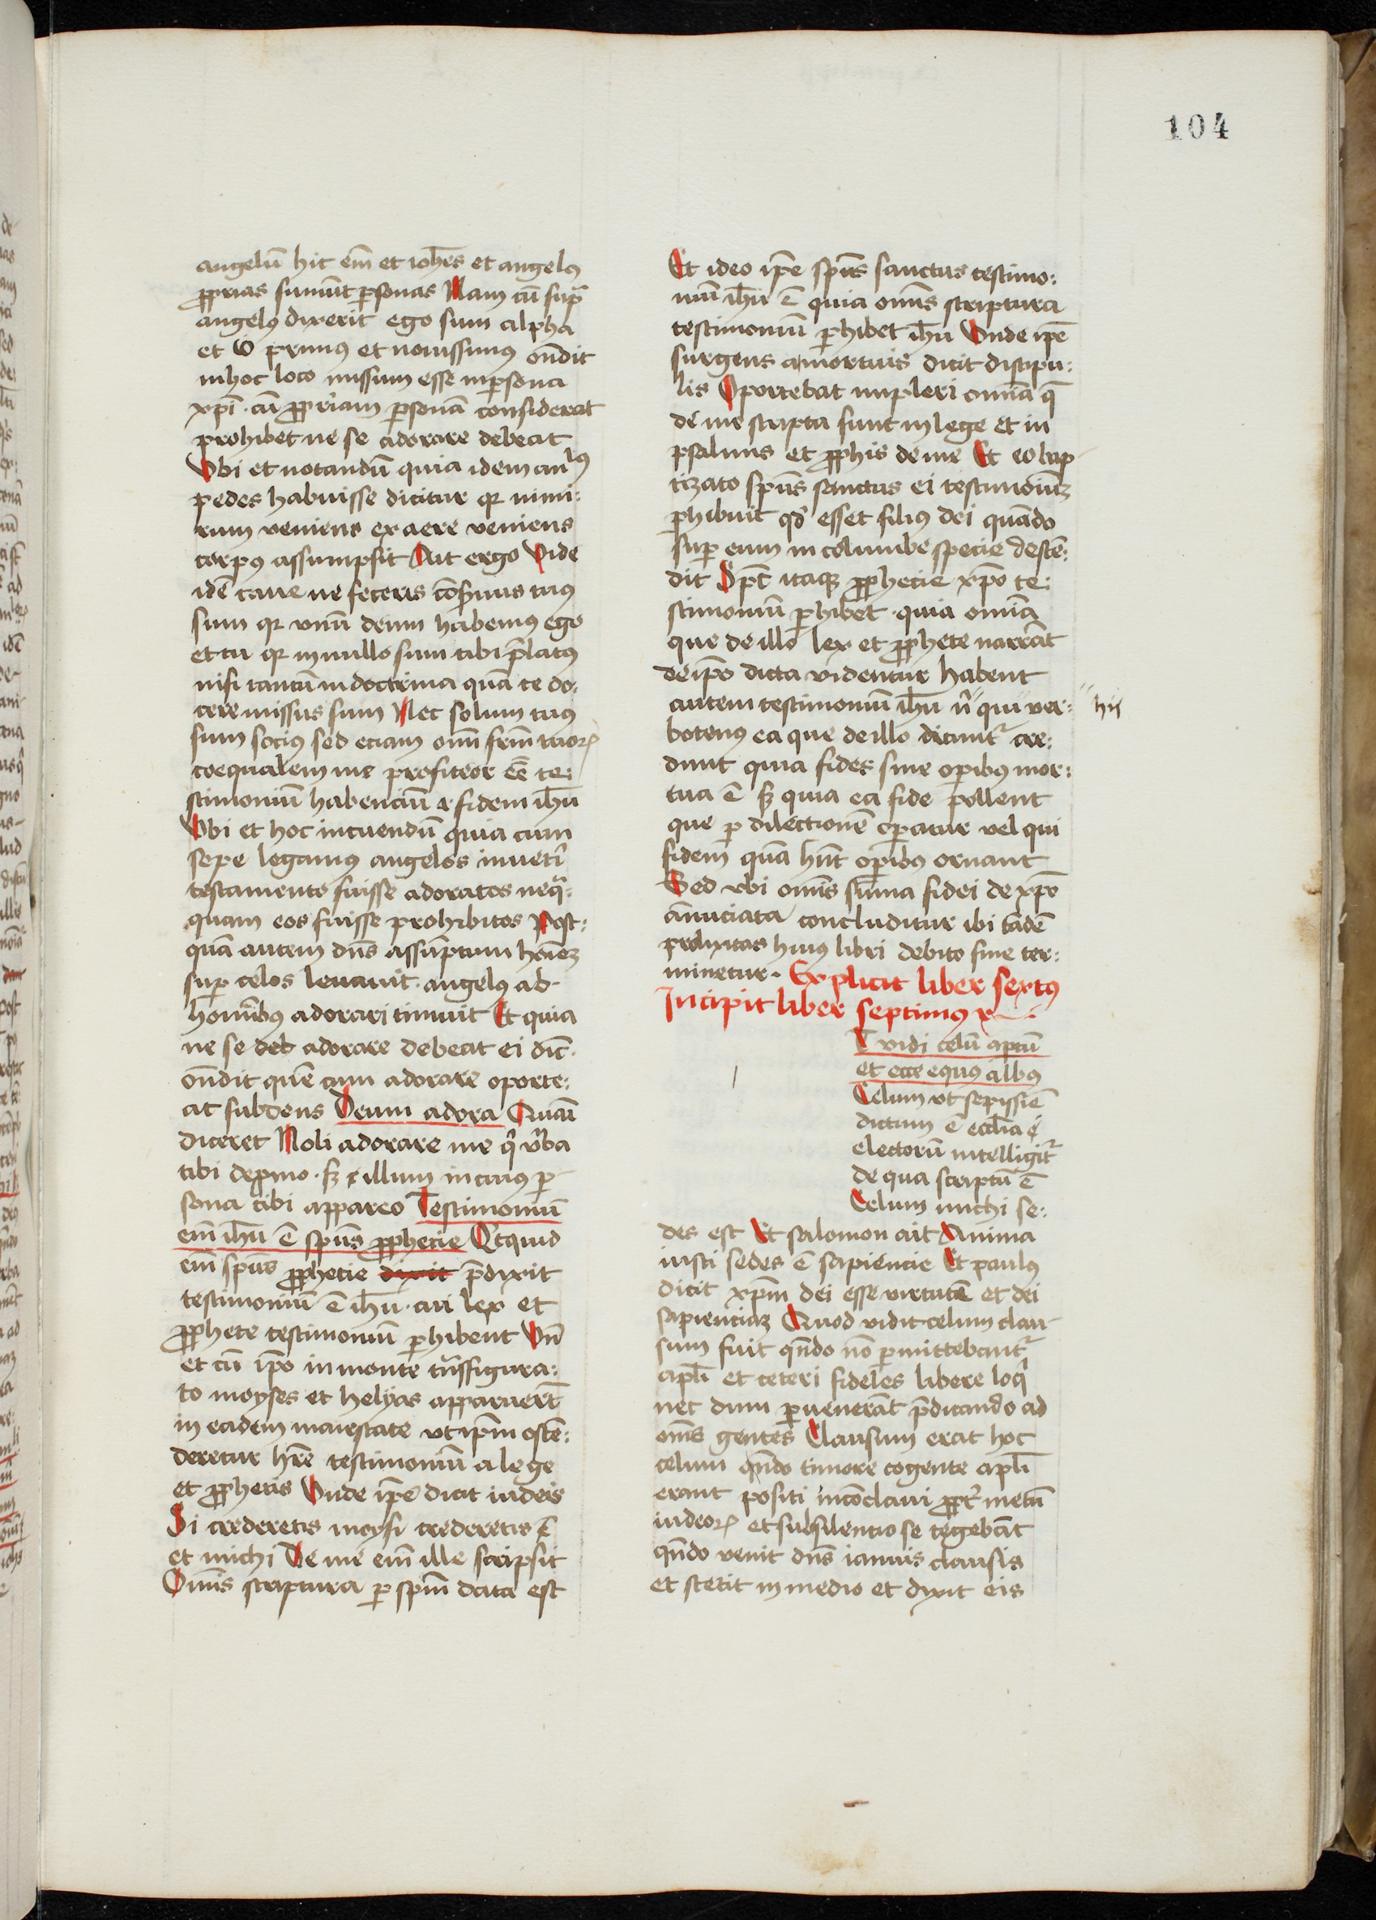 104
angelū hic em̄ et ioh̄es et angelꝰ
ꝓprias sumūt ꝑsonas Nam cū supͣ
angelꝰ dixerit ego sum alpha
et O primꝰ et nouissimꝰ on̄dit
inhoc loco missum esse inꝑsona
xp̄i · cū ꝓpriam ꝑsonā considerat
prohibet ne se adorare debeat
Vbi et notandū quia idem anlꝰ
pedes habuisse dicitur qr nimi:
rum veniens ex aere veniens
corpꝰ assumpsit Ait ergo Vide
idē caue ne feceris cōseruus tuꝰ
sum qr vnū deum habemus ego
et tu qr in nullo sum tibi p̄latus
nisi tantū in doctrina quā te do:
cere missus sum Nec solum tuꝰ
sum sociꝰ sed eciam om̄ frm̄ tuoꝝ
coequalem me profiteor eē te:
stimoniū habenciū ⁊ fidem ih̄u
Vbi et hoc intuendū quia cum
sepe legamus angelos inueti
testamento fuisse adoratos neq̄:
quam eos fuisse prohibitos Post:
quā autem dn̄s assūptum hoīeꝫ
suꝑ celos leuauit · angelꝰ ab
homībus adorari timuit Et quia
ne se deb adorare debeat ei dic̄ ·
on̄dit quē eum adorare oporte:
at subdens Deum adora Quasi
diceret Noli adorare me qͥ v̄ba
tibi depmo · sꝫ ⁊ illum in cuius ꝑ
sona tibi appareo Testimoniū
em̄ ih̄u ē spūs ꝓphecie Qͥcquid
em̄ spūs ꝓphecie dixit p̄dixit
testimoniū ē ih̄u · cui lex et
ꝓphete testimoniū ꝑhibent Vn̄
et cū ip̄o in monte trāsfigura:
to moyses et helyas apparuert̄
in eadem maiestate vt ip̄m ostē:
deretur hr̄e testimoniū a lege
et ꝓphetis Vnde ip̄e dicit iudeis
Si crederetis moysi crederetis
et michi De me em̄ ille scripsit
Om̄s scriptura ꝑ spm̄ data est
Et ideo ip̄e spūs sanctus testimo:
niū ih̄u ē quia om̄s scriptura
testimoniū ꝑhibet ih̄u Vnde ip̄e
surgens amortuis dicit discipu:
lis Oportebat impleri omīa q̄
de me scripta sunt in lege et in
psalmis et ꝓphīs de me Et eo bap
tizato spūs sanctus ei testimoniuꝫ
ꝑhibuit qd̄ esset filiꝰ dei quādo
suꝑ eum in columbe specie descē:
dit Spc̄ itaqꝫ ꝓphecie xp̄o te:
stimoniū ꝑhibet · quia omīa
que de illo lex et ꝓphete narrāt
de ip̄o dicta videntur habent
autem testimoniū ih̄u n̄ "qui ver: "hij
botenꝰ ea que de illo dicunt᷑ cre:
dunt quia fides sine oꝑibus mor:
tua ē sꝫ quia ea fide pollent
que ꝑ dilectionē oꝑatur vel qui
fidem quā hn̄t oꝑibus ornant
Sed vbi om̄s sūma fidei de xp̄o
ānuciata concluditur ibi tādē
prolixitas huius libri debito fine ter:
minetur · Explicit liber sextꝰ
Incipit liber septimus
T vidi celū aꝑtū
et ecce equꝰ albꝰ
Celum vt sepissiē
dictum ē ecclīa ē
electorū intelligit᷑
de qua scriptū ē
Celum michi se:
des est Et salomon ait Anima
iusti sedes ē sapiencie Et paulus
dicit xpm̄ dei esse virtutē et dei
sapienciaꝫ Quod vidit celum clau
sum fuit qn̄do nō ꝑmittebant᷑
apl̄i et ceteri fideles libere loqͥ
nec dum ꝑuenerāt p̄dicando ad
om̄s gentes Clausum erat hoc
celum qn̄do timore cogente apl̄i
erant positi in cōclaui ꝓpt᷑ metū
iudeoꝝ et sub silencio se tegebāt
qn̄do venit dn̄s ianuis clausis
et stetit in medio et dixit eis